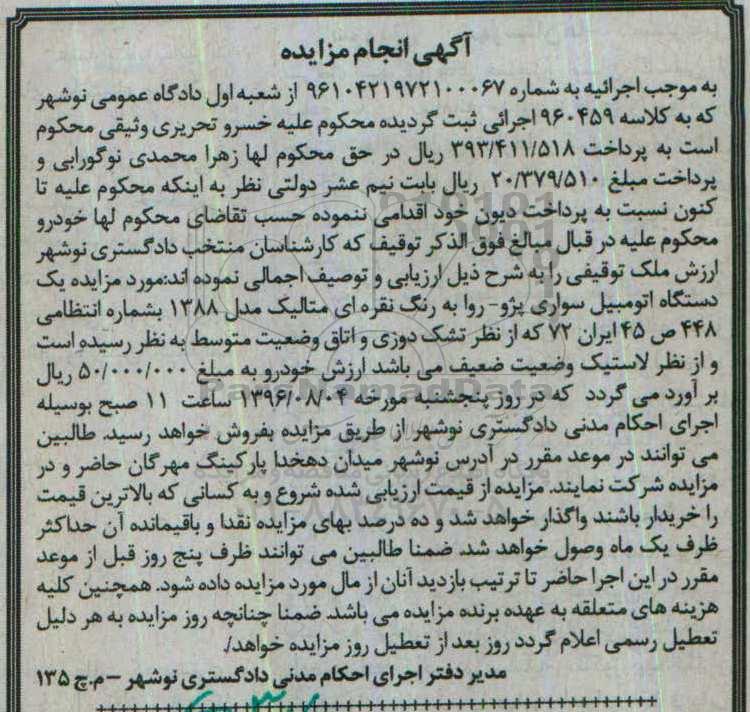 آگهی انجام مزایده
به موجب اجرائیه به شماره ۹۶۱۰۴۲۱۹۷۲۱۰۰۰۶۷ از شعبه اول دادگاه عمومی نوشهر
که به کلاسه ۹۶۰۴۵۹ اجرائی ثبت گردیده محکوم علیه خسرو تحریری وثیقی محکوم
است به پرداخت ۳۹۳/۴۱۱/۵۱۸ ریال در حق محکوم لها زهرا محمدی نوگورابی و
پرداخت مبلغ ۲۰/۳۷۹/۵۱۰ ریال بابت نیم عشر دولتی نظر به اینکه محکوم علیه تا
کنون نسبت به پرداخت دیون خود اقدامی ننموده حسب تقاضای محکوم لها خودرو
محکوم علیه در قبال مبالغ فوق الذکر توقیف که کارشناسان منتخب دادگستری نوشهر
ارزش ملک توقیفی را به شرح ذیل ارزیابی و توصیف اجمالی نموده اند:مورد مزایده یک
دستگاه اتومبیل سواری پژو- روا به رنگ نقره ای متالیک مدل ۱۳۸۸ بشماره انتظامی
۴۴۸ ص ۴۵ ایران ۷۲ که از نظر تشک دوزی و اتاق وضعیت متوسط به نظر رسیده است
و از نظر لاستیک وضعیت ضعیف می باشد ارزش خودرو به مبلغ ۵۰/۰۰۰/۰۰۰ ریال
بر آورد می گردد که در روز پنجشنبه مورخه ۱۳۹۶/۰۸/۰۴ ساعت ۱۱ صبح بوسیله
اجرای احکام مدنی دادگستری نوشهر از طریق مزایده بفروش خواهد رسید. طالبین
می توانند در موعد مقرر در آدرس نوشهر میدان دهخدا پارکینگ مهرگان حاضر و در
مزایده شرکت نمایند. مزایده از قیمت ارزیابی شده شروع و به کسانی که بالاترین قیمت
را خریدار باشند واگذار خواهد شد و ده درصد بهای مزایده نقدا و باقیمانده آن حداکثر
ظرف یک ماه وصول خواهد شد. ضمنا طالبین می توانند ظرف پنج روز قبل از موعد
مقرر در این اجرا حاضر تا ترتیب بازدید آنان از مال مورد مزایده داده شود. همچنین کلیه
هزینه های متعلقه به عهده برنده مزایده می باشد. ضمنا چنانچه روز مزایده به هر دلیل
تعطیل رسمی اعلام گردد روز بعد از تعطیل روز مزایده خواهد/.
مدیر دفتر اجرای احکام مدنی دادگستری نوشهر – م.چ ۱۳۵